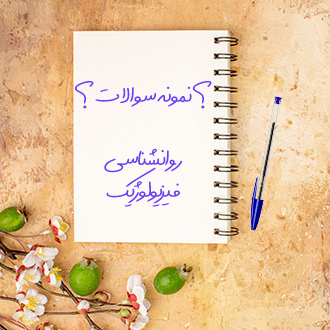 ؟ نمونه سوالات ؟
روانشناسی
فیزیولوژیک